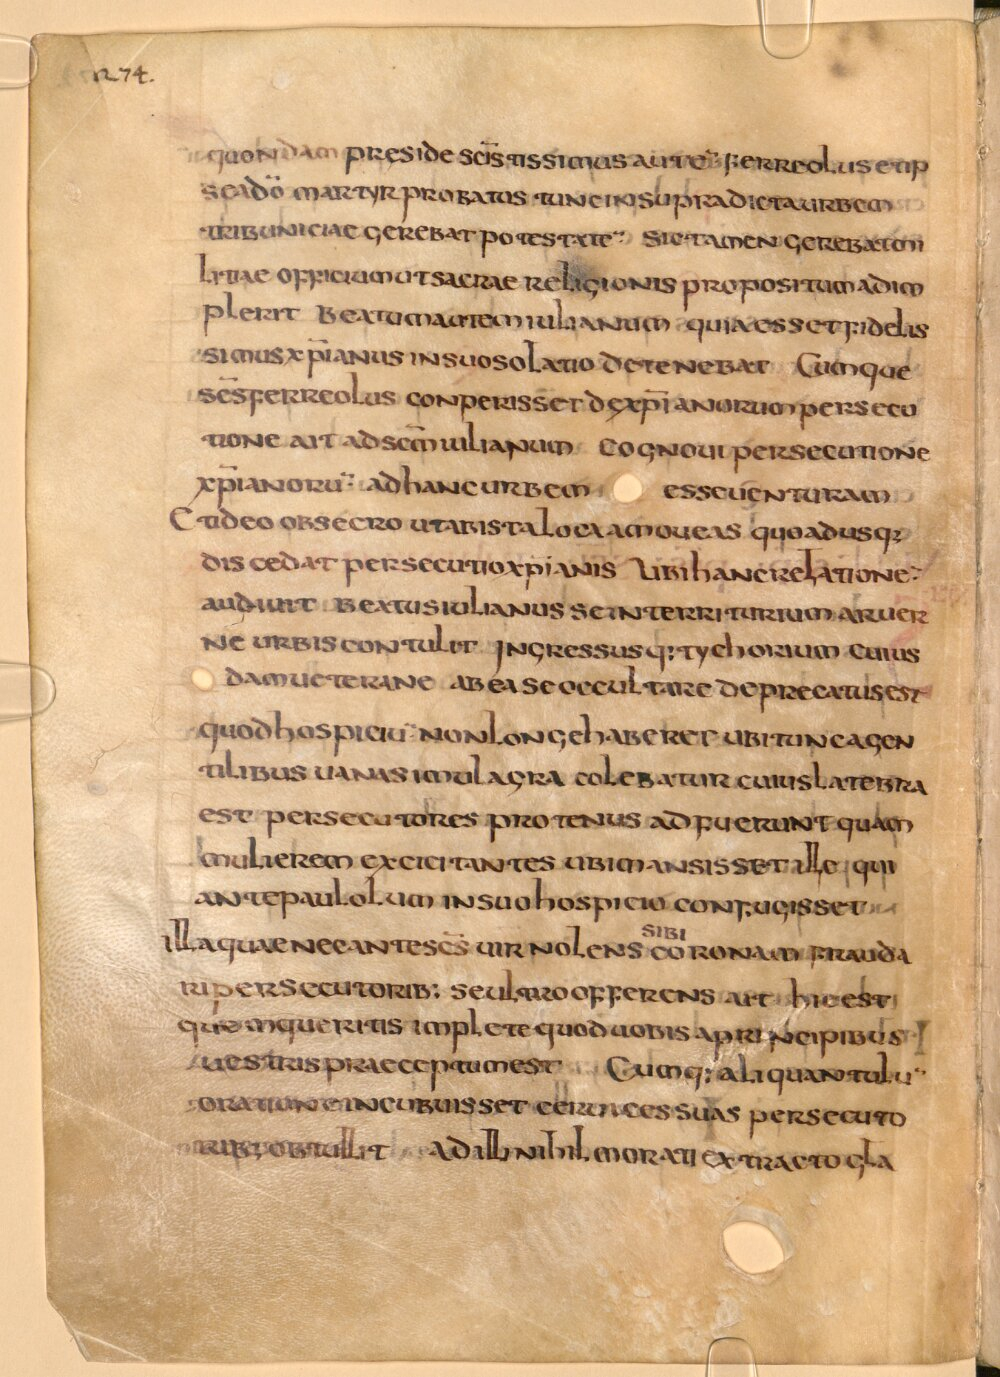 n.74.
quondam preside sc̄istissimus aute᷈ ferreolus etip
se ad dō martyr probatus tunc in supradicta urbem
tribuniciae gerebat potestate᷈ sic tamen gerebat mi
litiae officium ut sacrae religionis propositum adim
plerit Beatum autem iulianum quia esset fidelis
simus xp̄ianus in suo solatio detenebat Cumque
sc̄s ferreolus conperisset de xp̄ianorum persecu
tione ait ad sc̄m iulianum cognoui persecutione
xp̄ianoru᷈ ad hanc urbem esse uenturam
Et ideo obsecro ut ab ista loca amoueas quoadusq;
discedat persecutio xp̄ianis Ubi hanc relatione᷈
audiuit Beatus iulianus se in territurium aruer
ne urbis contulit Ingressusq; tychorium cuius
dam ueterane ab ea se occultare deprecatus est
quod hospiciu᷈ non longe haberet ubi tunc a gen
tilibus uana simulagra colebatur cuius latebra
est persecutores protenus adfuerunt quam
mulierem excicitantes ubi mansisset ille qui
ante paulolum in suo hospicio confugisset
illa quae necante sc̄s uir nolens sibi coronam frauda
ri persecutorib; se ultro offerens ait hic est
quem queritis implete quod uobis a principibus
uestris praeceptum est Cumq; aliquantulu᷈
oratione incubuisset ceruices suas persecuto
rib; obtullit ad illi nihil morati extracto gla